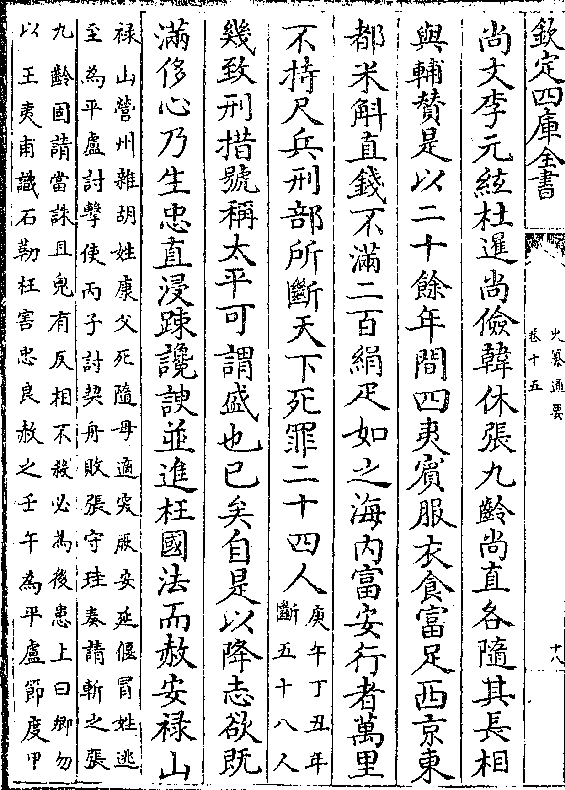 欽定四庫全書
史纂通要
卷十五
十八
尚文李元紘杜暹尚儉韓休張九齡尚直各隨其長相
與輔贊是以二十餘年間四夷賓服衣食富足西京東
都米斛直錢不滿二百絹疋如之海內富安行者萬里
不持尺兵刑部所斷天下死罪二十四人
庚午丁丑年
斷五十八人
幾致刑措號稱太平可謂盛也已矣自是以降志欲既
滿侈心乃生忠直浸踈讒諛並進枉國法而赦安禄山
禄山營州雜胡姓康父死隨母適突厥安延偃冐姓逃
至為平盧討擊使丙子討契丹敗張守珪奏請斬之張
九齡固請當誅且皃有反相不殺必為後患上曰卿勿
以王夷甫識石勒枉害忠良赦之壬午為平盧節度甲